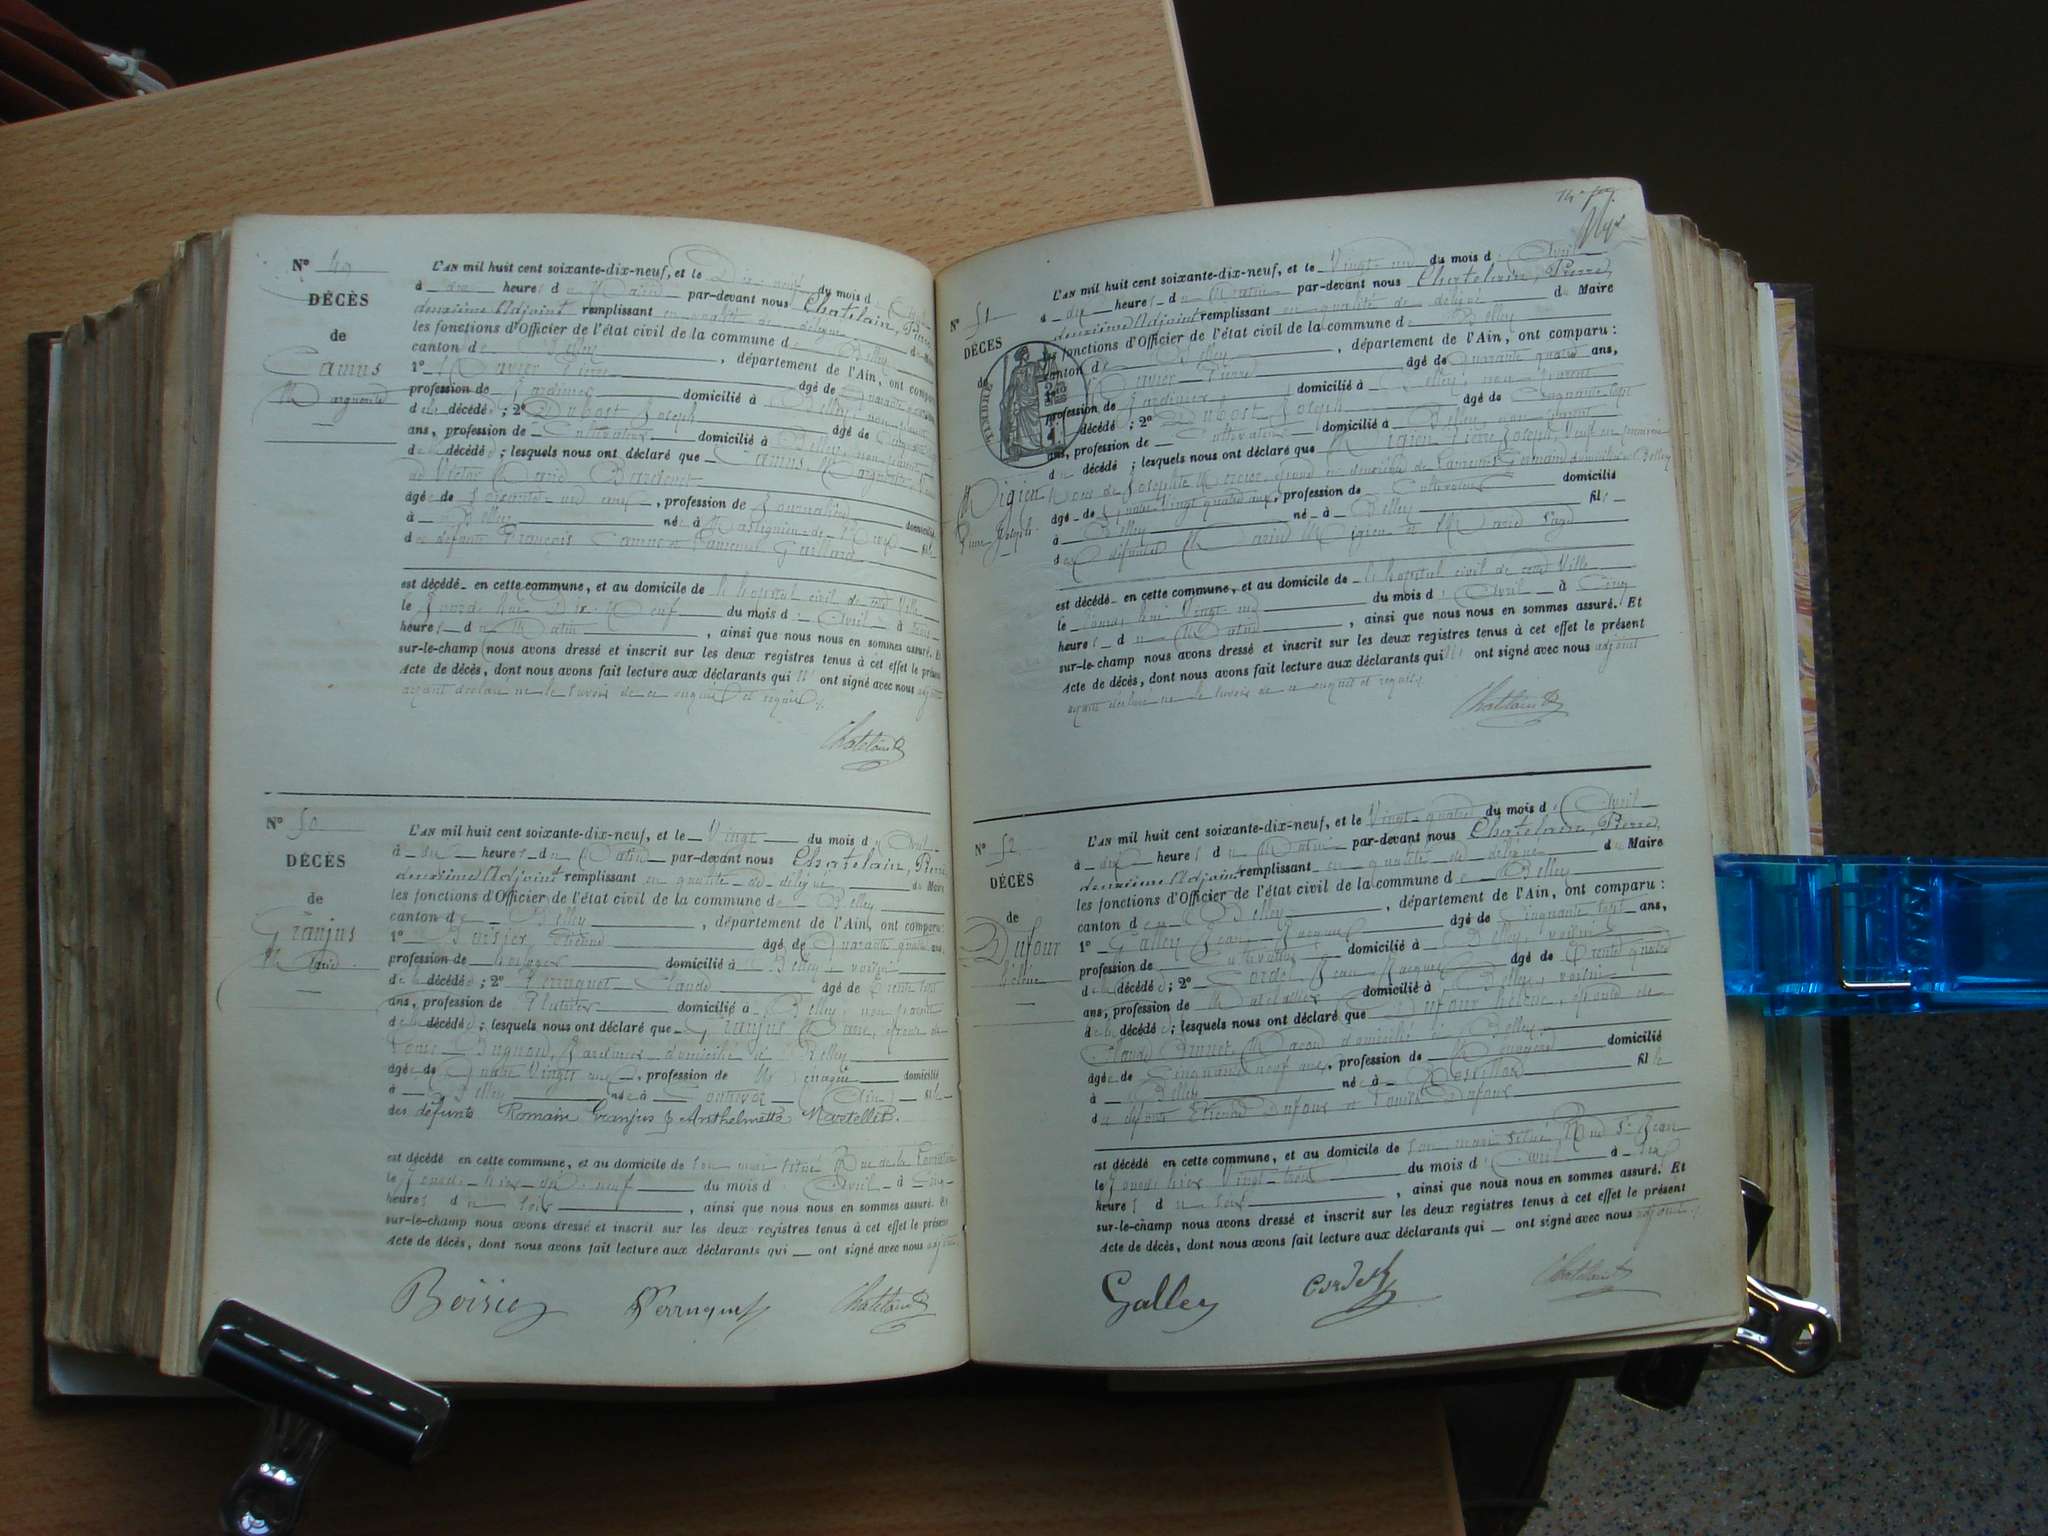 N° 49
DÉCÈS
de
Camus
Marguerite
L'AN mil huit cent soixante-dix-neuf, et le Dix neuf du mois d' Avril
à dix heures du Matin par-devant nous Chatelain, Pierre
deuxième Adjoint remplissant en qualité de délégué du Maire
les fonctions d'Officier de l'état civil de la commune de Belley
canton de Belley, département de l'Ain, ont comparu
1° Pierre âgé de Quarante quatre
profession de Jardinier domicilié à Belley, non parent
de la décédée; 2° Dubost Joseph âgé de Cinquante sept
ans, profession de Cultivateur domicilié à Belley, non parent
de la décédée; lesquels nous ont déclaré que Camus Marguerite,
âgée de Soixante un ans, profession de Journalière domicilié
à Belley née à fille
de défunts François Camus et Gaillard
est décédé en cette commune, et au domicile de l'hopital civil de cette Ville
le Jourd'hui Dix Neuf du mois d' Avril à
heures du Matin, ainsi que nous nous en sommes assuré. Et
sur-le-champ nous avons dressé et inscrit sur les deux registres tenus à cet effet le présent
Acte de décès, dont nous avons fait lecture aux déclarants qui n' ont signé avec nous adjoint
ayant déclaré ne le savoir de ce enquis et requis
Chatelain P
N° 50
DÉCÈS
de
Granjus
Marie
L'AN mil huit cent soixante-dix-neuf, et le Vingt du mois d' Avril
à dix heures du Matin par-devant nous Chatelain, Pierre
deuxième Adjoint remplissant en qualité de délégué du Maire
les fonctions d'Officier de l'état civil de la commune de Belley
canton de Belley, département de l'Ain, ont comparu:
1° Boisier Etienne âgé de Quarante quatre ans,
profession de horloger domicilié à Belley voisin
de la décédée; 2° Perruquet Claude âgé de Trente sept
ans, profession de Plâtrier domicilié à Belley, non parent
de la décédée; lesquels nous ont déclaré que Granjus Marie, épouse de
Louis Bugnon, Jardinier domicilié à Belley
âgée de Quatre Vingts ans, profession de Ménagère domicilié
à Belley née à (Ain) fille
des défunts Romain Granjus & Anthelmette Martellet.
est décédé en cette commune, et au domicile de son mari situé Rue de la
le Jourd'hier dix neuf du mois d' Avril à Cinq
heures du soir, ainsi que nous nous en sommes assuré. Et
sur-le-champ nous avons dressé et inscrit sur les deux registres tenus à cet effet le présent
Acte de décès, dont nous avons fait lecture aux déclarants qui ont signé avec nous adjoint
Boisier Perruquet Chatelain P
N° 51
DÉCÈS
de
Migieu
Pierre Joseph
TIMBRE
L'AN mil huit cent soixante-dix-neuf, et le Vingt-un du mois d' Avril
à dix heures du Matin par-devant nous Chatelain, Pierre
deuxième Adjoint remplissant en qualité de délégué du Maire
les fonctions d'Officier de l'état civil de la commune de Belley
canton de Belley, département de l'Ain, ont comparu:
Pierre âgé de Quarante quatre ans,
profession de Jardinier domicilié à Belley, non parent
décédé; 2° Dubost Joseph âgé de Cinquante sept
ans, profession de Cultivateur domicilié à Belley, non parent
du décédé; lesquels nous ont déclaré que Migieu Pierre Joseph, Veuf en premières
Noces de Josephte Mercier, époux en deuxième de Laurence Germain domicilié à Belley
âgé de Quatre Vingt quatre ans, profession de Cultivateur domicilié
à Belley né à Belley fils
des défunts Marin Migieu et Marie
est décédé en cette commune, et au domicile de l'hopital civil de cette Ville
le Jourd'hui Vingt un du mois d' Avril à Cinq
heures du Matin, ainsi que nous nous en sommes assuré. Et
sur-le-champ nous avons dressé et inscrit sur les deux registres tenus à cet effet le présent
Acte de décès, dont nous avons fait lecture aux déclarants qui n' ont signé avec nous adjoint
ayant déclaré ne le savoir de ce enquis et requis
Chatelain P
N° 52
DÉCÈS
de
Dufour
hélène
L'AN mil huit cent soixante-dix-neuf, et le Vingt-quatre du mois d' Avril
à dix heures du Matin par-devant nous Chatelain, Pierre,
deuxième Adjoint remplissant en qualité de délégué du Maire
les fonctions d'Officier de l'état civil de la commune de Belley
canton de Belley, département de l'Ain, ont comparu:
1° Galley Jean Jacques âgé de Cinquante sept ans,
profession de Cultivateur domicilié à Belley, voisin
de la décédée; 2° Cordel Jean Jacques âgé de Trente quatre
ans, profession de Matelassier domicilié à Belley, voisin
de la décédée; lesquels nous ont déclaré que Dufour hélène, épouse de
Claude Brunet, Maçon domicilié à Belley,
âgée de Cinquante neuf ans, profession de Ménagère domicilié
à Belley née à fille
de défunts Etienne Dufour et Louise Dufour
est décédé en cette commune, et au domicile de son mari situé, Rue St Jean
le Jourd'hier Vingt-trois du mois d' Avril à six
heures du soir, ainsi que nous nous en sommes assuré. Et
sur-le-champ nous avons dressé et inscrit sur les deux registres tenus à cet effet le présent
Acte de décès, dont nous avons fait lecture aux déclarants qui ont signé avec nous adjoint
Galley Cordel Chatelain P